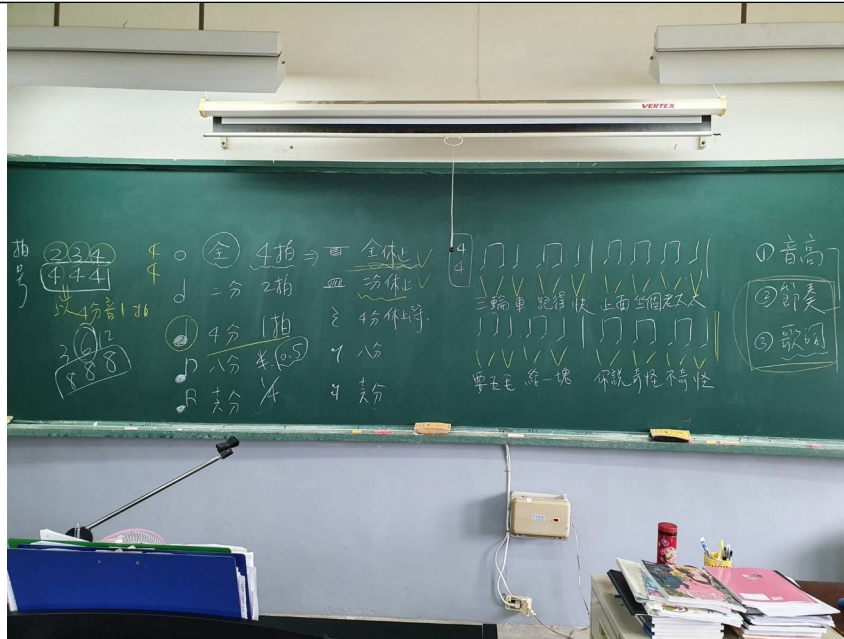 VERTEX
拍号
2 3 4
4 4 4
以4分音1拍
3 6 12
8 8 8
4
4
全 4拍 ⇒ 全休止
二分 2拍 二分休止
4分 1拍 4分休止符.
八分 0.5 八分
1/4
4
4
三輪車 跑得快 上面坐個老太太
要五毛 給一塊 你說奇怪不奇怪
① 音高
② 節奏
③ 歌詞